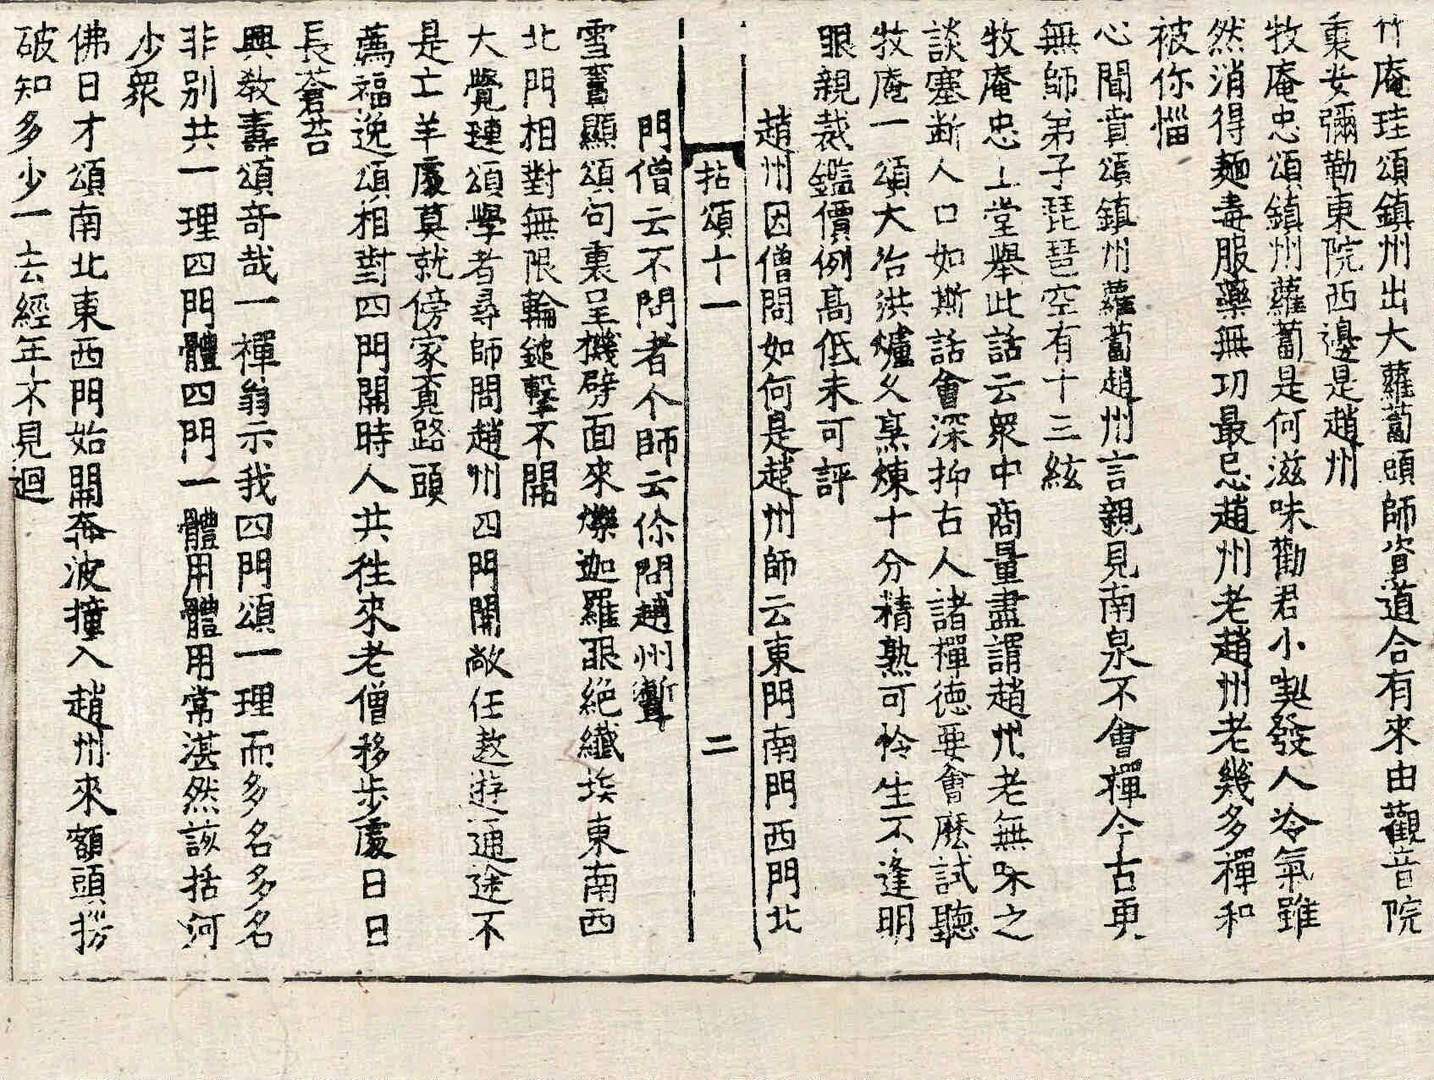 竹庵珪頌鎮州出大蘿蔔頭師資道合有來由觀音院
裏安彌勒東院西邊是趙州
牧庵忠頌鎮州蘿蔔是何滋味勸君小喫發人冷氣雖
然消得麵毒服藥無功最忌趙州老趙州老幾多禪和
被你惱
心聞賁頌鎮州蘿蔔趙州言親見南泉不會禪今古更
無師弟子琵琶空有十三絃
牧庵忠上堂舉此話云衆中商量盡謂趙州老無味之
談塞斷人口如斯話會深抑古人諸禪德要會麽試聽
牧庵一頌大冶洪爐久烹煉十分精熟可怜生不逢明
眼親裁鑑價例高低未可評
趙州因僧問如何是趙州師云東門南門西門北
拈頌十一 二
門僧云不問者个師云你問趙州聻
雪竇顯頌句裏呈機劈面來爍迦羅眼絶纖埃東南西
北門相對無限輪鎚擊不開
大覺璉頌學者尋師問趙州四門開敞任遨遊通途不
是亡羊處莫就傍家覔路頭
薦福逸頌相對四門開時人共往來老僧移步處日日
長蒼苔
興教壽頌奇哉一禪翁示我四門頌一理而多名多名
非別共一理四門體四門一體用體用常湛然該括河
沙衆
佛日才頌南北東西門始開奔波撞入趙州來額頭撈
破知多少一去經年不見迴